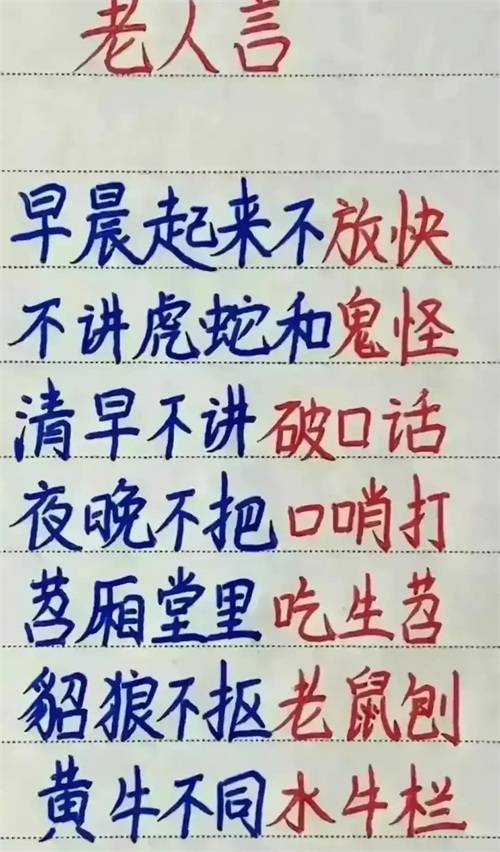 老人言
早晨起来不放快
不讲虎蛇和鬼怪
清早不讲破口话
夜晚不把口哨打
苕厢堂里吃生苕
貂狼不抠老鼠刨
黄牛不同水牛栏